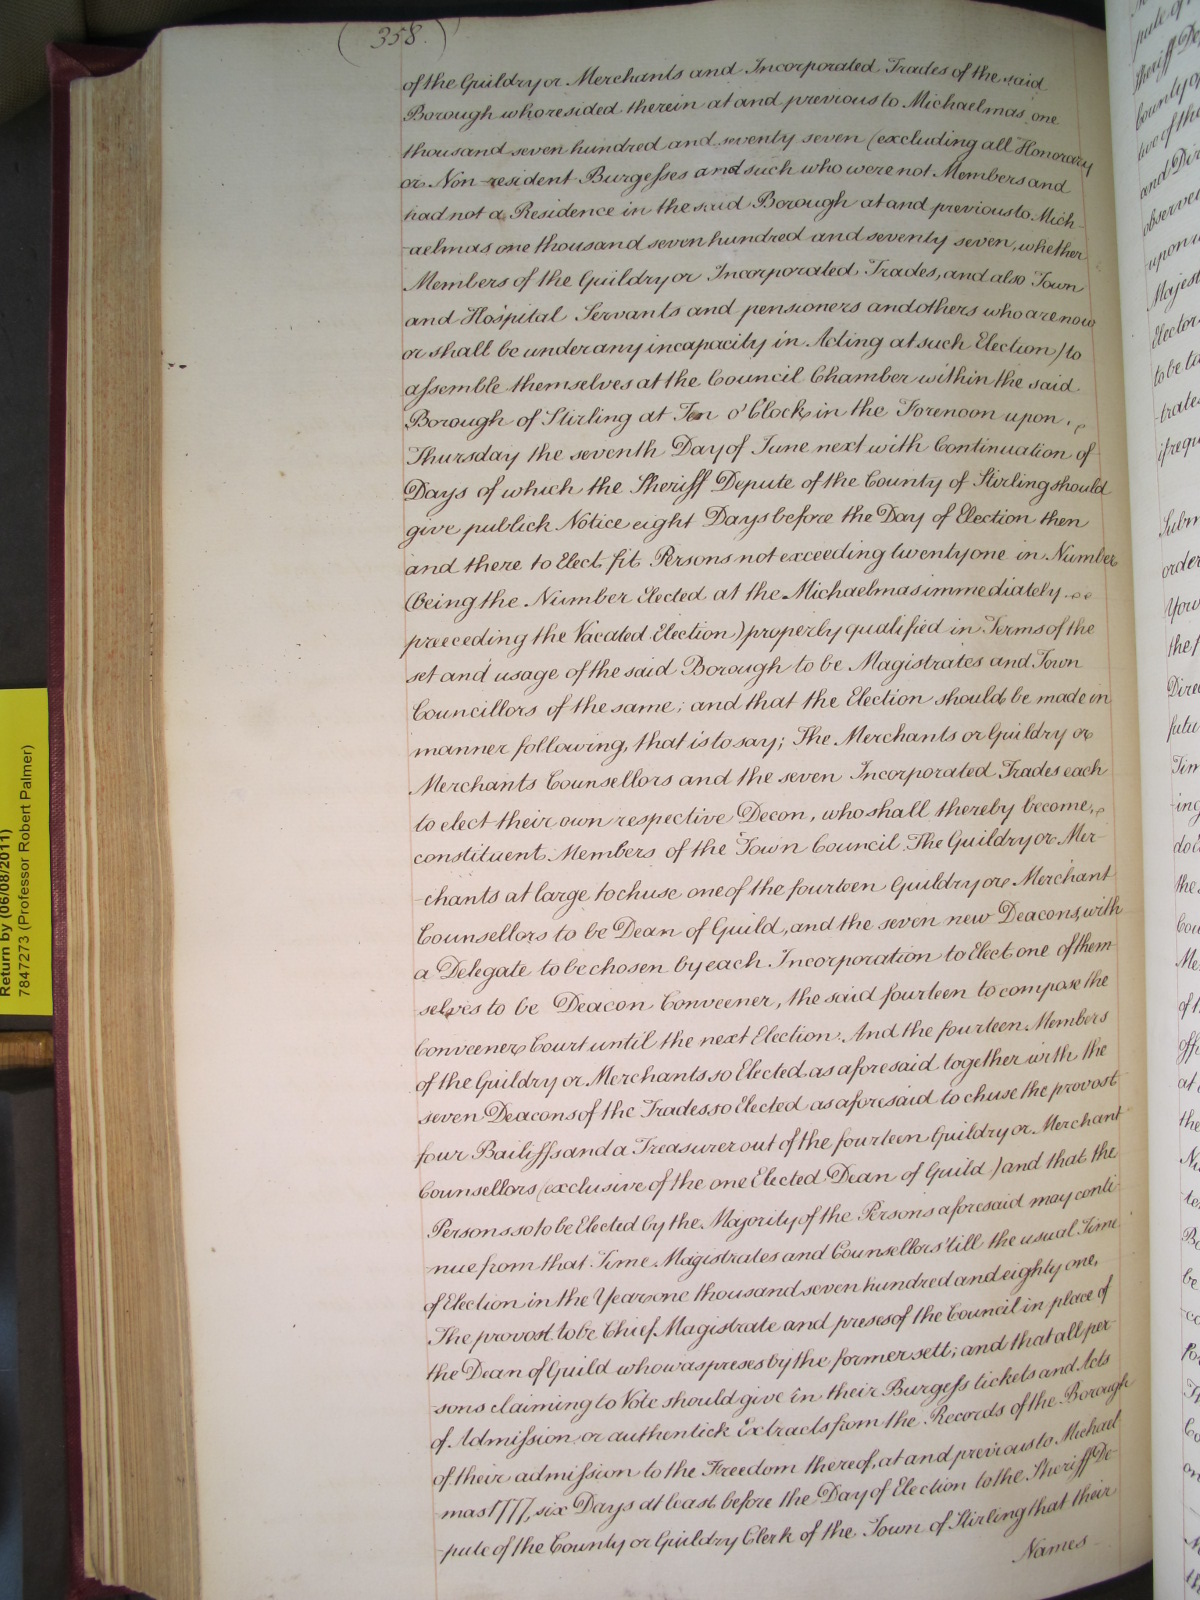 (358.)
of the Guildry or Merchants and Incorporated Trades of the said
Borough who resided therein at and previous to Michaelmas one
thousand seven hundred and seventy seven (excluding all Honorary
or Non-resident Burgesses and such who were not Members and
had not a Residence in the said Borough at and previous to Mich-
-aelmas one thousand seven hundred and seventy seven, whether
Members of the Guildry or Incorporated Trades, and also Town
and Hospital Servants and pensioners and others who are now
or shall be under any incapacity in Acting at such Election) to
assemble themselves at the Council Chamber within the said
Borough of Stirling at Ten o'Clock in the Forenoon upon
Thursday the seventh Day of June next with Continuation of
Days of which the Sheriff Depute of the County of Stirling should
give publick Notice eight Days before the Day of Election then
and there to Elect fit Persons not exceeding twenty one in Number
(being the Number Elected at the Michaelmas immediately
preeceding the Vacated Election) properly qualified in Terms of the
set and usage of the said Borough to be Magistrates and Town
Councillors of the same; and that the Election should be made in
manner following, that is to say; The Merchants or Guildry or
Merchants Counsellors and the seven Incorporated Trades each
to elect their own respective Decon, who shall thereby become
constituent Members of the Town Council The Guildry or Mer-
-chants at large to chuse one of the fourteen Guildry or Merchant
Counsellors to be Dean of Guild, and the seven new Deacons, with
a Delegate to be chosen by each Incorporation to Elect one of them-
selves to be Deacon Conveener, the said fourteen to compose the
Conveeners Court until the next Election. And the fourteen Members
of the Guildry or Merchants so Elected as aforesaid together with the
seven Deacons of the Trades so Elected as aforesaid to chuse the provost
four Bailiffs and a Treasurer out of the fourteen Guildry or Merchant
Counsellors (exclusive of the one Elected Dean of Guild) and that the
Persons so to be Elected by the Majority of the Persons aforesaid may conti-
-nue from that Time Magistrates and Counsellors 'till the usual Time
of Election in the Year one thousand seven hundred and eighty one,
The provost to be Chief Magistrate and preses of the Council in place of
the Dean of Guild who was preses by the former sett; and that all per-
-sons claiming to Vote should give in their Burgess tickets and Acts
of Admission or authentick Extracts from the Records of the Borough
of their admission to the Freedom thereof, at and previous to Michael-
mas 1777, six Days at least before the Day of Election to the Sheriff De-
-pute of the County or Guildry Clerk of the Town of Stirling that their
Names
Return by (06/08/2011)
7847273 (Professor Robert Palmer)